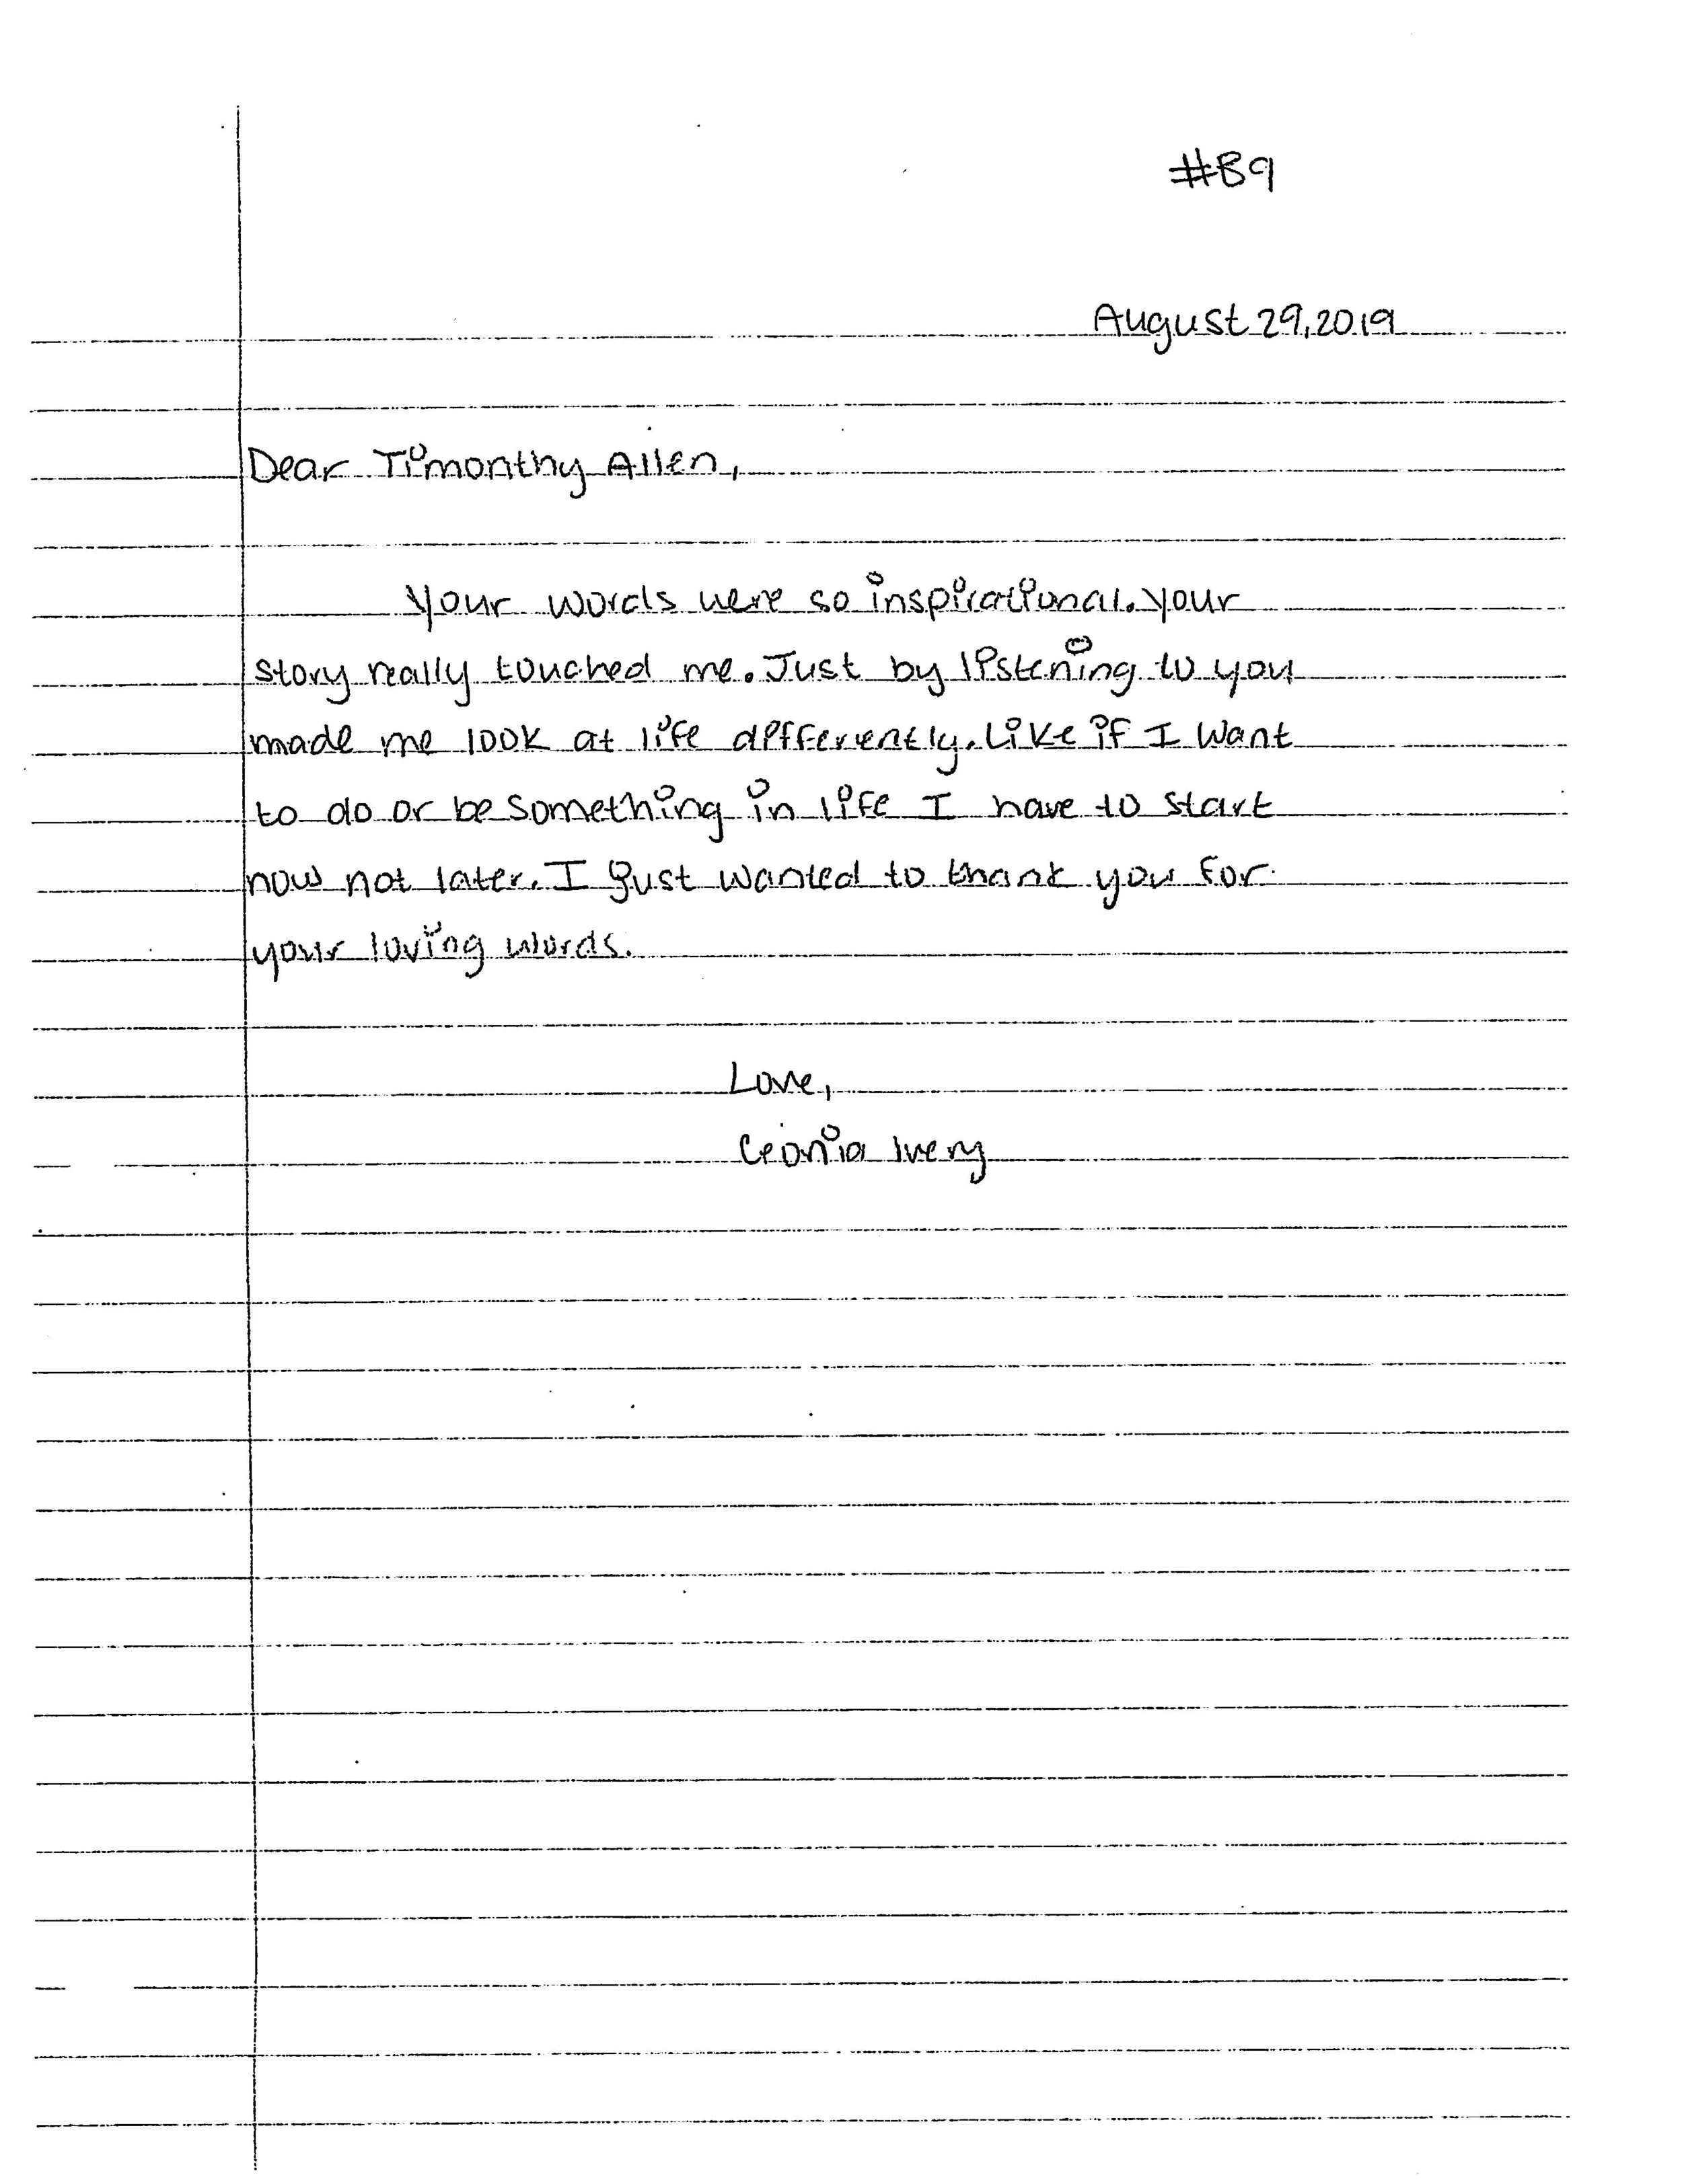 #89
August 29, 2019
Dear Timonthy Allen,
Your words were so inspirational. Your
story really touched me. Just by listening to you
made me look at life differently. Like if I want
to do or be something in life I have to start
now not later. I just wanted to thank you for
your loving words.
Love,
Ceonia Ivery